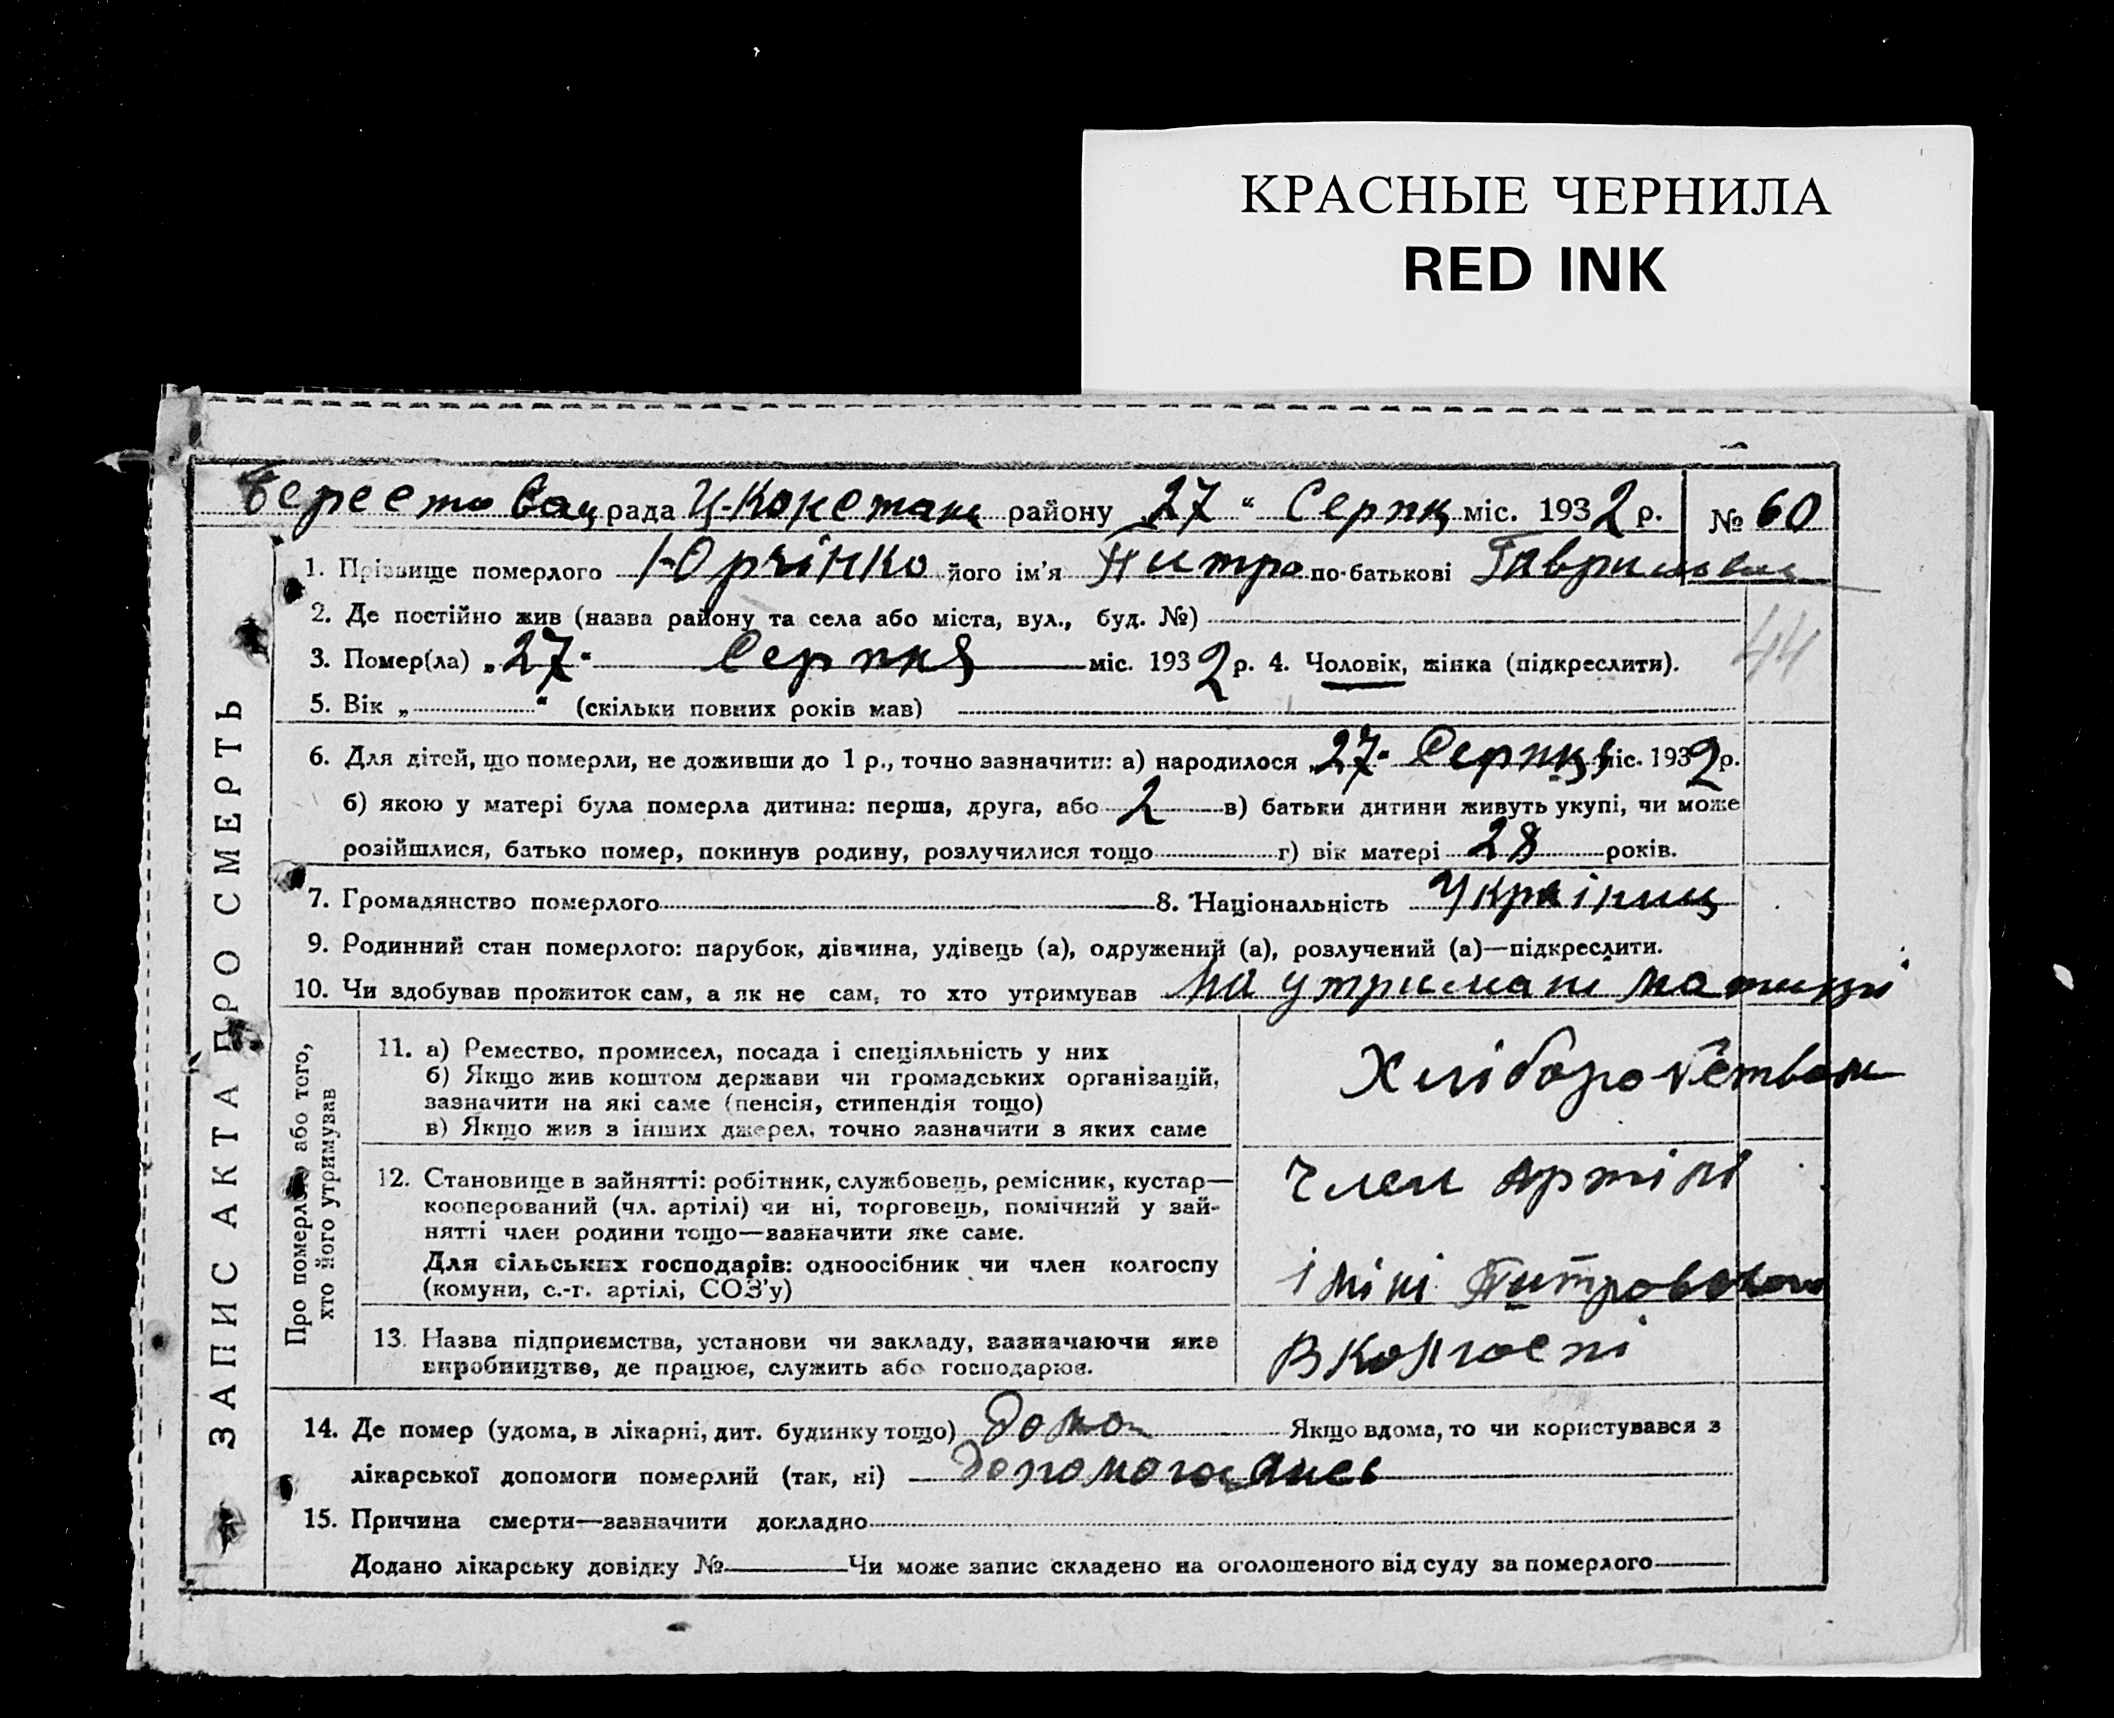 КРАСНЫЕ ЧЕРНИЛА
RED INK
Берестовец рада району 27 " Серпня міс. 1932 р. № 60
1. Прізвище померлого Юрчінко його ім'я Питро по-батькові Гаврилович
2. Де постійно жив (назва району та села або міста, вул., буд. №)
44
3. Помер(ла) „ 27 " Серпня міс. 1932 р. 4. Чоловік, жінка (підкреслити).
5. Вік „ " (скільки повних років мав)
6. Для дітей, що померли, не доживши до 1 р., точно зазначити: а) народилося 27 Серпня міс. 1932 р.
б) якою у матері була померла дитина: перша, друга, або 2 в) батьки дитини живуть укупі, чи може
розійшлися, батько помер, покинув родину, розлучилися тощо г) вік матері 28 років.
7. Громадянство померлого 8. Національність Україниц
9. Родинний стан померлого: парубок, дівчина, удівець (а), одружений (а), розлучений (а)—підкреслити.
10. Чи здобував прожиток сам, а як не сам, то хто утримував на утримані
ЗАПИС АКТА ПРО СМЕРТЬ
Про померлого або того,
хто його утримував
11. а) Ремество, промисел, посада і спеціяльність у них
б) Якщо жив коштом держави чи громадських організацій,
зазначити на які саме (пенсія, стипендія тощо)
в) Якщо жив з інших джерел, точно зазначити з яких саме
Хліборобством
12. Становище в зайнятті: робітник, службовець, ремісник, кустар—
кооперований (чл. артілі) чи ні, торговець, помічний у зай-
нятті член родини тощо—зазначити яке саме.
Для сільських господарів: одноосібник чи член колгоспу
(комуни, с.-г. артілі, СОЗ'у)
Член артілі
імині Питровського
13. Назва підприємства, установи чи закладу, зазначаючи яке
виробництво, де працює, служить або господарює.
В колгоспі
14. Де помер (удома, в лікарні, дит. будинку тощо) Дома Якщо вдома, то чи користувався з
лікарської допомоги померлий (так, ні)
15. Причина смерти—зазначити докладно
Додано лікарську довідку № Чи може запис складено на оголошеного від суду за померлого